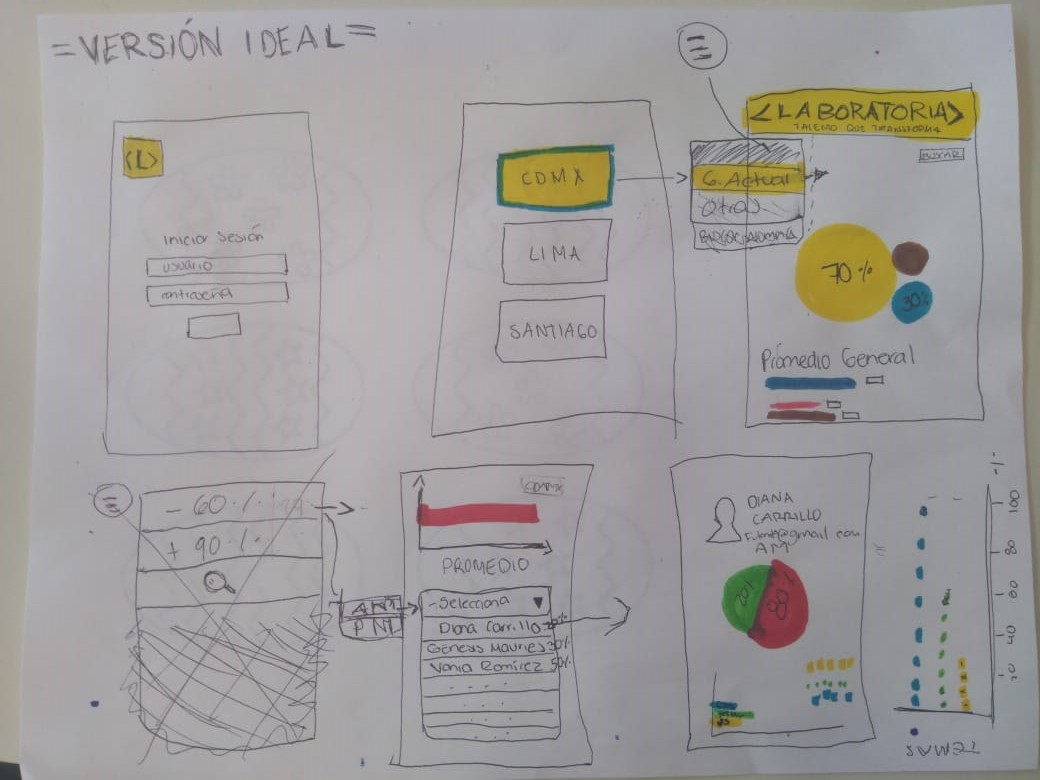 =VERSIÓN IDEAL=
<L>
Iniciar Sesión
usuario
contraseña
CDMX
LIMA
SANTIAGO
G. Actual
Otras
<LABORATORIA>
TALENTO QUE TRANSFORMA
BUSCAR
70%
30%
Promedio General
- 60 %
+ 90 %
AM
PM
CDMX
PROMEDIO
-Selecciona
Diana Carrillo
Genesis Mauries 30%
Vania Ramírez 50%
DIANA
CARRILLO
AM
20%
80%
100
80
60
40
20
TEMAS